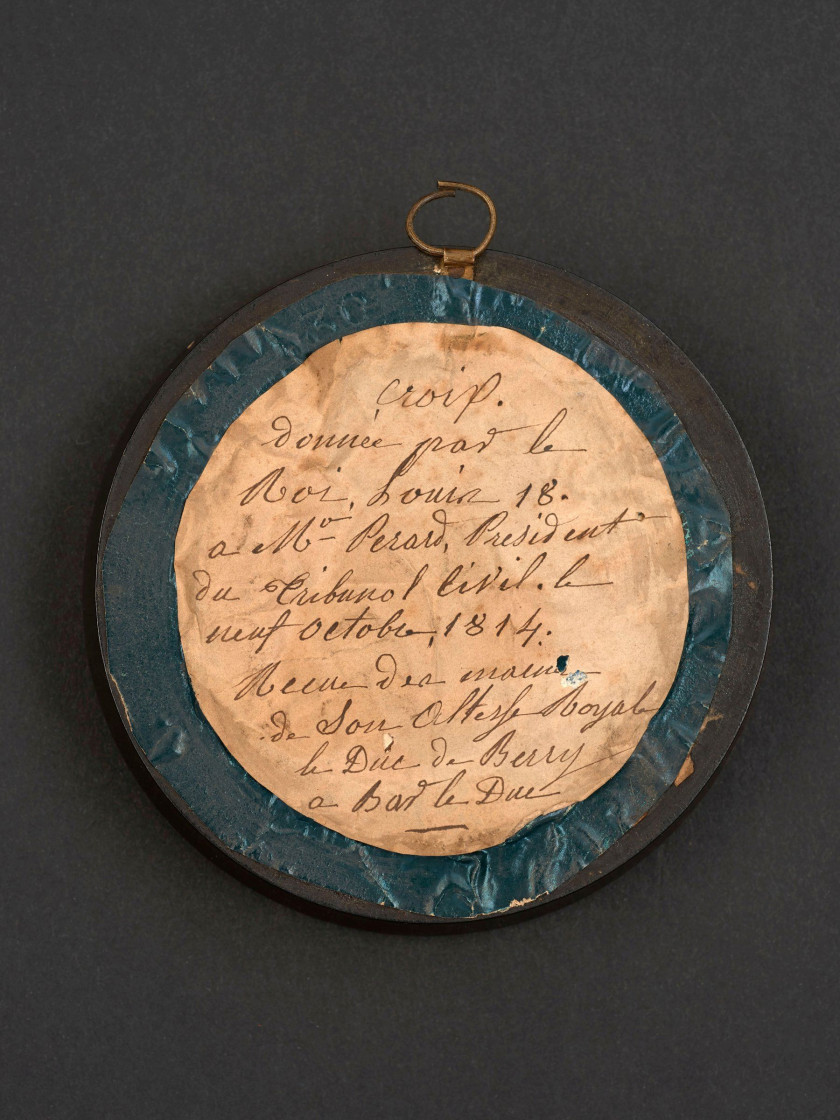 Croix.
donnée par le
Roi, Louis 18.
a Mr Perard, President
du Tribunal Civil. le
neuf Octobre, 1814.
Recue des mains
de Son Altesse Royale
le Duc de Berry
a Bar le Duc